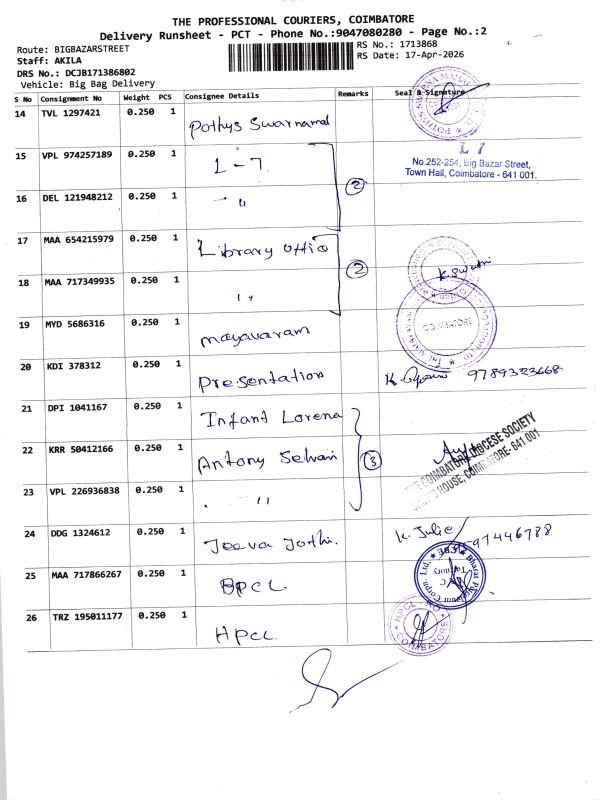 THE PROFESSIONAL COURIERS, COIMBATORE
Delivery Runsheet - PCT - Phone No.:9047080280 - Page No.:2
Route: BIGBAZARSTREET
RS No.: 1713868
Staff: AKILA
RS Date: 17-Apr-2026
DRS No.: DCJB171386802
Vehicle: Big Bag Delivery
S No Consignment No Weight PCS Consignee Details Remarks Seal & Signature
14 TVL 1297421 0.250 1 Pothys Swarnamal
15 VPL 974257189 0.250 1 L-7.
L 7
No.252-254, Big Bazar Street,
Town Hall, Coimbatore - 641 001.
16 DEL 121948212 0.250 1 - "
2
17 MAA 654215979 0.250 1 Library
18 MAA 717349935 0.250 1 "
2
K. Swathi
19 MYD 5686316 0.250 1 mayavaram
COIMBATORE
20 KDI 378312 0.250 1 Presentation
K. 9789323668
21 DPI 1041167 0.250 1 Infant Lorena
22 KRR 50412166 0.250 1 Antony Selvan
3
THE COIMBATORE DIOCESE SOCIETY
HOUSE, COIMBATORE- 641 001
23 VPL 226936838 0.250 1 . "
24 DDG 1324612 0.250 1 Jeeva Jothi.
K. Julie.
597446788
25 MAA 717866267 0.250 1 BPCL
Bharat Petroleum Corpn. Ltd.,
26 TRZ 195011177 0.250 1 HPCL.
HPCL - RO
COIMBATORE